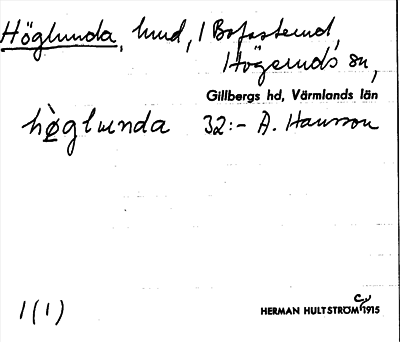 Höglunda, hmd, i Bofasterud,
Högeruds sn,
Gillbergs hd, Värmlands län
hø̀glunda 32:- A. Hansson
1(1)
HERMAN HULTSTRÖM 1915